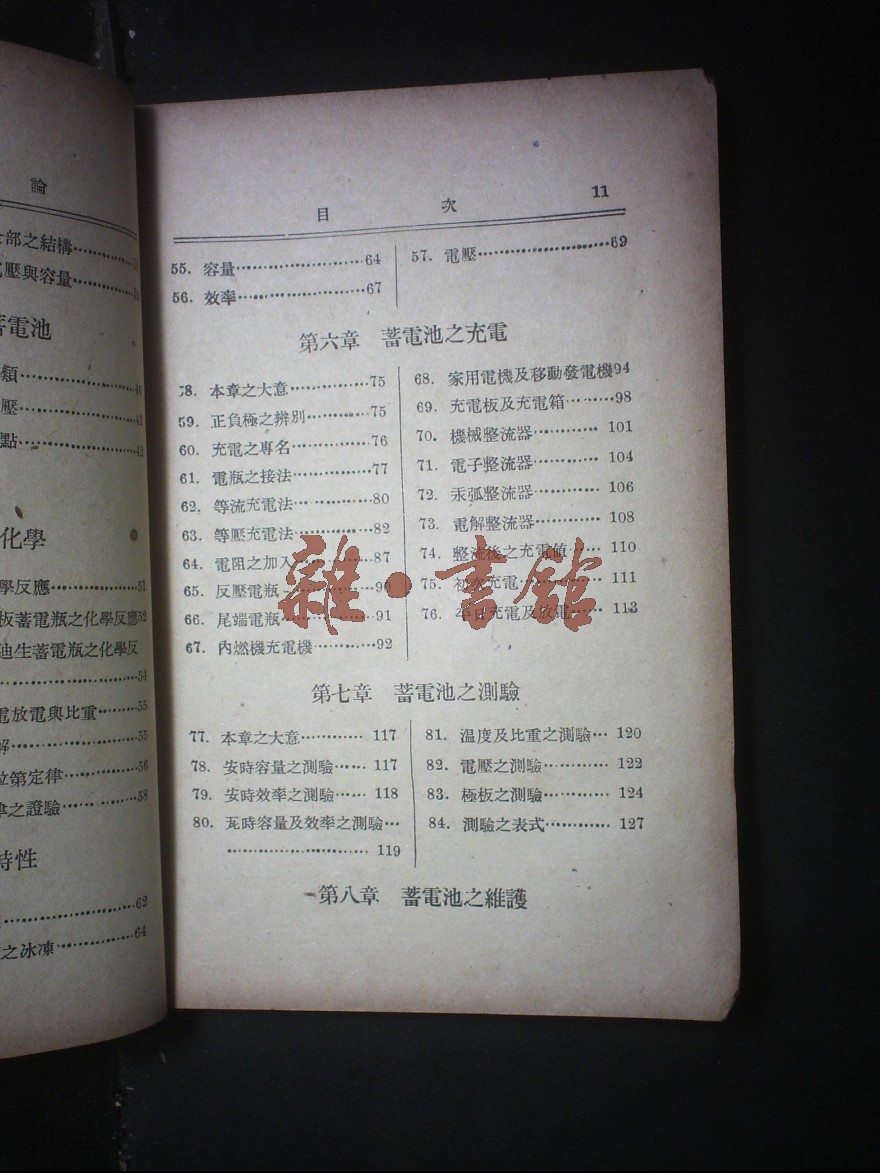 論
部之結構
壓與容量
蓄電池
類 40
壓 41
點 42
化學
學反應 51
板蓄電瓶之化學反應52
迪生蓄電瓶之化學反
54
電放電與比重 55
解 55
位第定律 56
律之證驗 58
特性
62
之冰凍 64
目 次 11
55. 容量 64
56. 效率 67
57. 電壓 69
第六章 蓄電池之充電
58. 本章之大意 75
59. 正負極之辨別 75
60. 充電之專名 76
61. 電瓶之接法 77
62. 等流充電法 80
63. 等壓充電法 82
64. 電阻之加入 87
65. 反壓電瓶 90
66. 尾端電瓶 91
67. 內燃機充電機 92
68. 家用電機及移動發電機94
69. 充電板及充電箱 98
70. 機械整流器 101
71. 電子整流器 104
72. 汞弧整流器 106
73. 電解整流器 108
74. 整流後之充電値 110
75. 初次充電 111
76. 平日充電及放電 113
雜·書館
第七章 蓄電池之測驗
77. 本章之大意 117
78. 安時容量之測驗 117
79. 安時效率之測驗 118
80. 瓦時容量及效率之測驗
119
81. 温度及比重之測驗 120
82. 電壓之測驗 122
83. 極板之測驗 124
84. 測驗之表式 127
第八章 蓄電池之維護